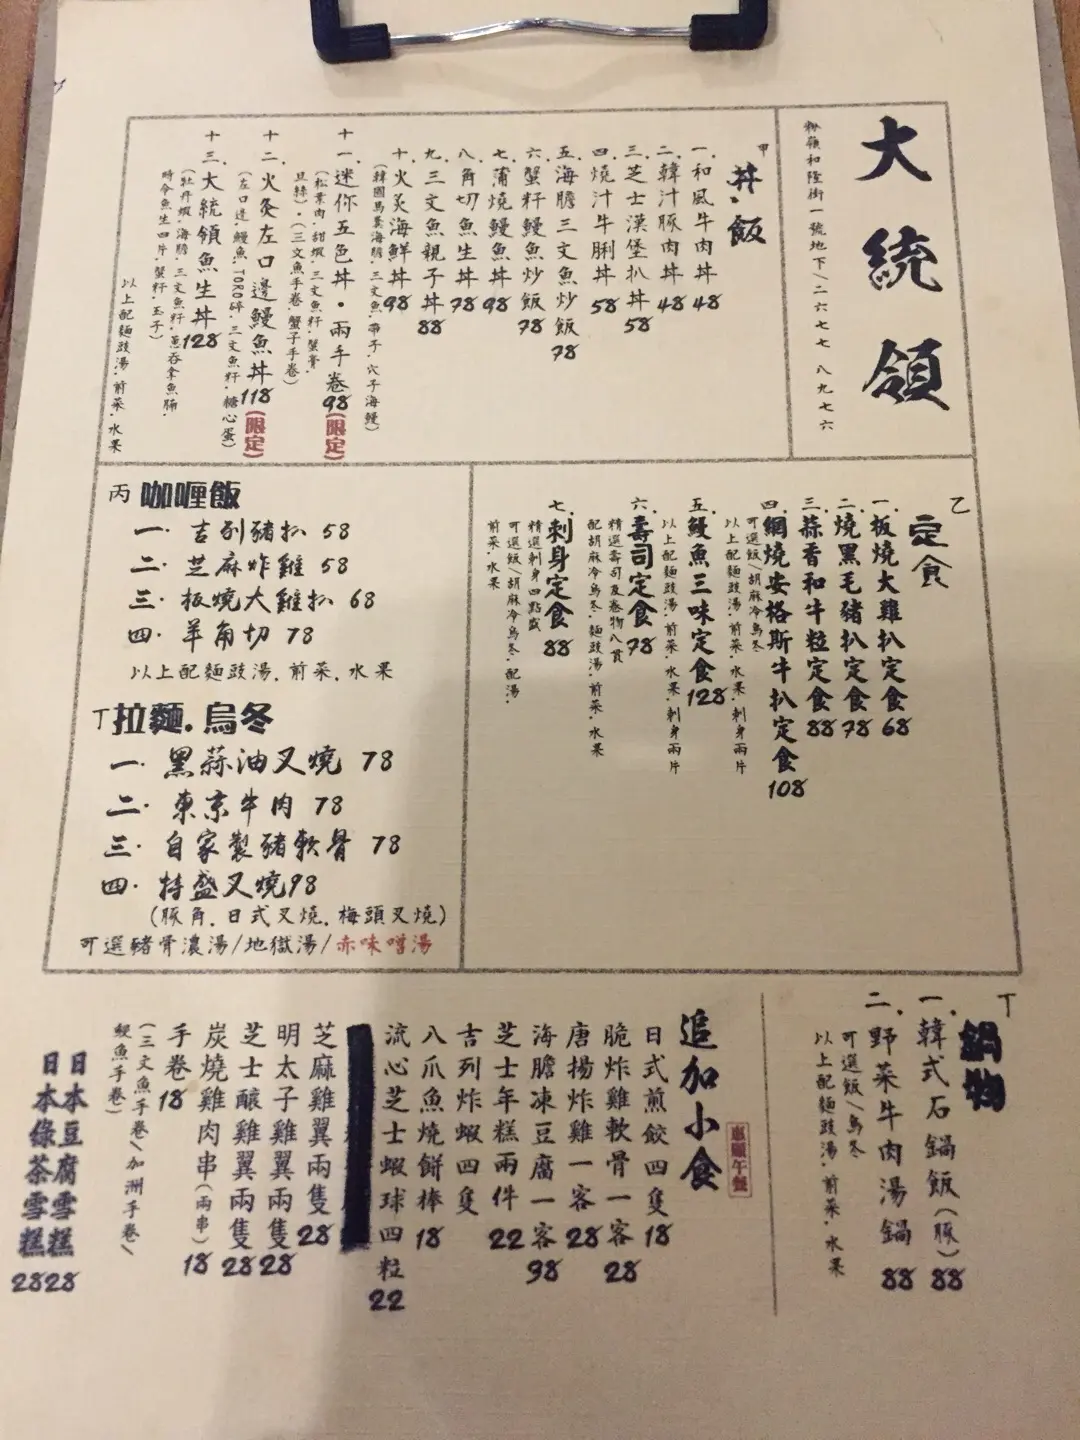 大統領
粉嶺和隆街一號地下/二六七七 八九七六
甲 丼.飯
一.和風牛肉丼48
二.韓汁豚肉丼48
三.芝士漢堡扒丼58
四.燒汁牛脷丼58
五.海膽三文魚炒飯78
六.蟹籽鰻魚炒飯78
七.蒲燒鰻魚丼98
八.角切魚生丼78
九.三文魚親子丼88
十.火炙海鮮丼98
(韓國馬糞海膽.三文魚.帶子.穴子海鰻)
十一.迷你五色丼.兩手卷98(限定)
(松葉肉.甜蝦.三文魚籽.蟹膏.
旦絲).(三文魚手卷.蟹子手卷)
十二.火灸左口邊鰻魚丼118(限定)
(左口邊.鰻魚.TORO碎.三文魚籽.糖心蛋)
十三.大統領魚生丼128
(牡丹蝦.海膽.三文魚籽.蔥吞拿魚腩.
時令魚生四片.蟹籽.玉子)
以上配麵豉湯.前菜.水果
乙 定食
一.板燒大雞扒定食68
二.燒黑毛豬扒定食78
三.蒜香和牛粒定食88
四.網燒安格斯牛扒定食108
可選飯/胡麻冷烏冬
以上配麵豉湯.前菜.水果.刺身兩片
五.鰻魚三味定食128
以上配麵豉湯.前菜.水果.刺身兩片
六.壽司定食78
精選壽司及卷物八貫
配胡麻冷烏冬.麵豉湯.前菜.水果
七.刺身定食88
精選刺身四點盛
可選飯/胡麻冷烏冬.配湯.
前菜.水果
丙 咖喱飯
一. 吉列豬扒 58
二. 芝麻炸雞 58
三. 板燒大雞扒 68
四. 羊角切 78
以上配麵豉湯.前菜.水果
丁拉麵.烏冬
一. 黑蒜油叉燒 78
二. 東京牛肉 78
三. 自家製豬軟骨 78
四. 特盛叉燒98
(豚角.日式叉燒.梅頭叉燒)
可選豬骨濃湯/地獄湯/赤味噌湯
丁 鍋物
一.韓式石鍋飯(豚)88
二.野菜牛肉湯鍋 88
可選飯/烏冬
以上配麵豉湯.前菜.水果
追加小食
惠顧午餐
日式煎餃四隻18
脆炸雞軟骨一客28
唐揚炸雞一客28
海膽凍豆腐一客98
芝士年糕兩件22
吉列炸蝦四隻
八爪魚燒餅棒18
流心芝士蝦球四粒22
芝麻雞翼兩隻28
明太子雞翼兩隻28
芝士釀雞翼兩隻28
炭燒雞肉串(兩串)18
手卷18
(三文魚手卷/加洲手卷/
鰻魚手卷)
日本豆腐雪糕28
日本綠茶雪糕28